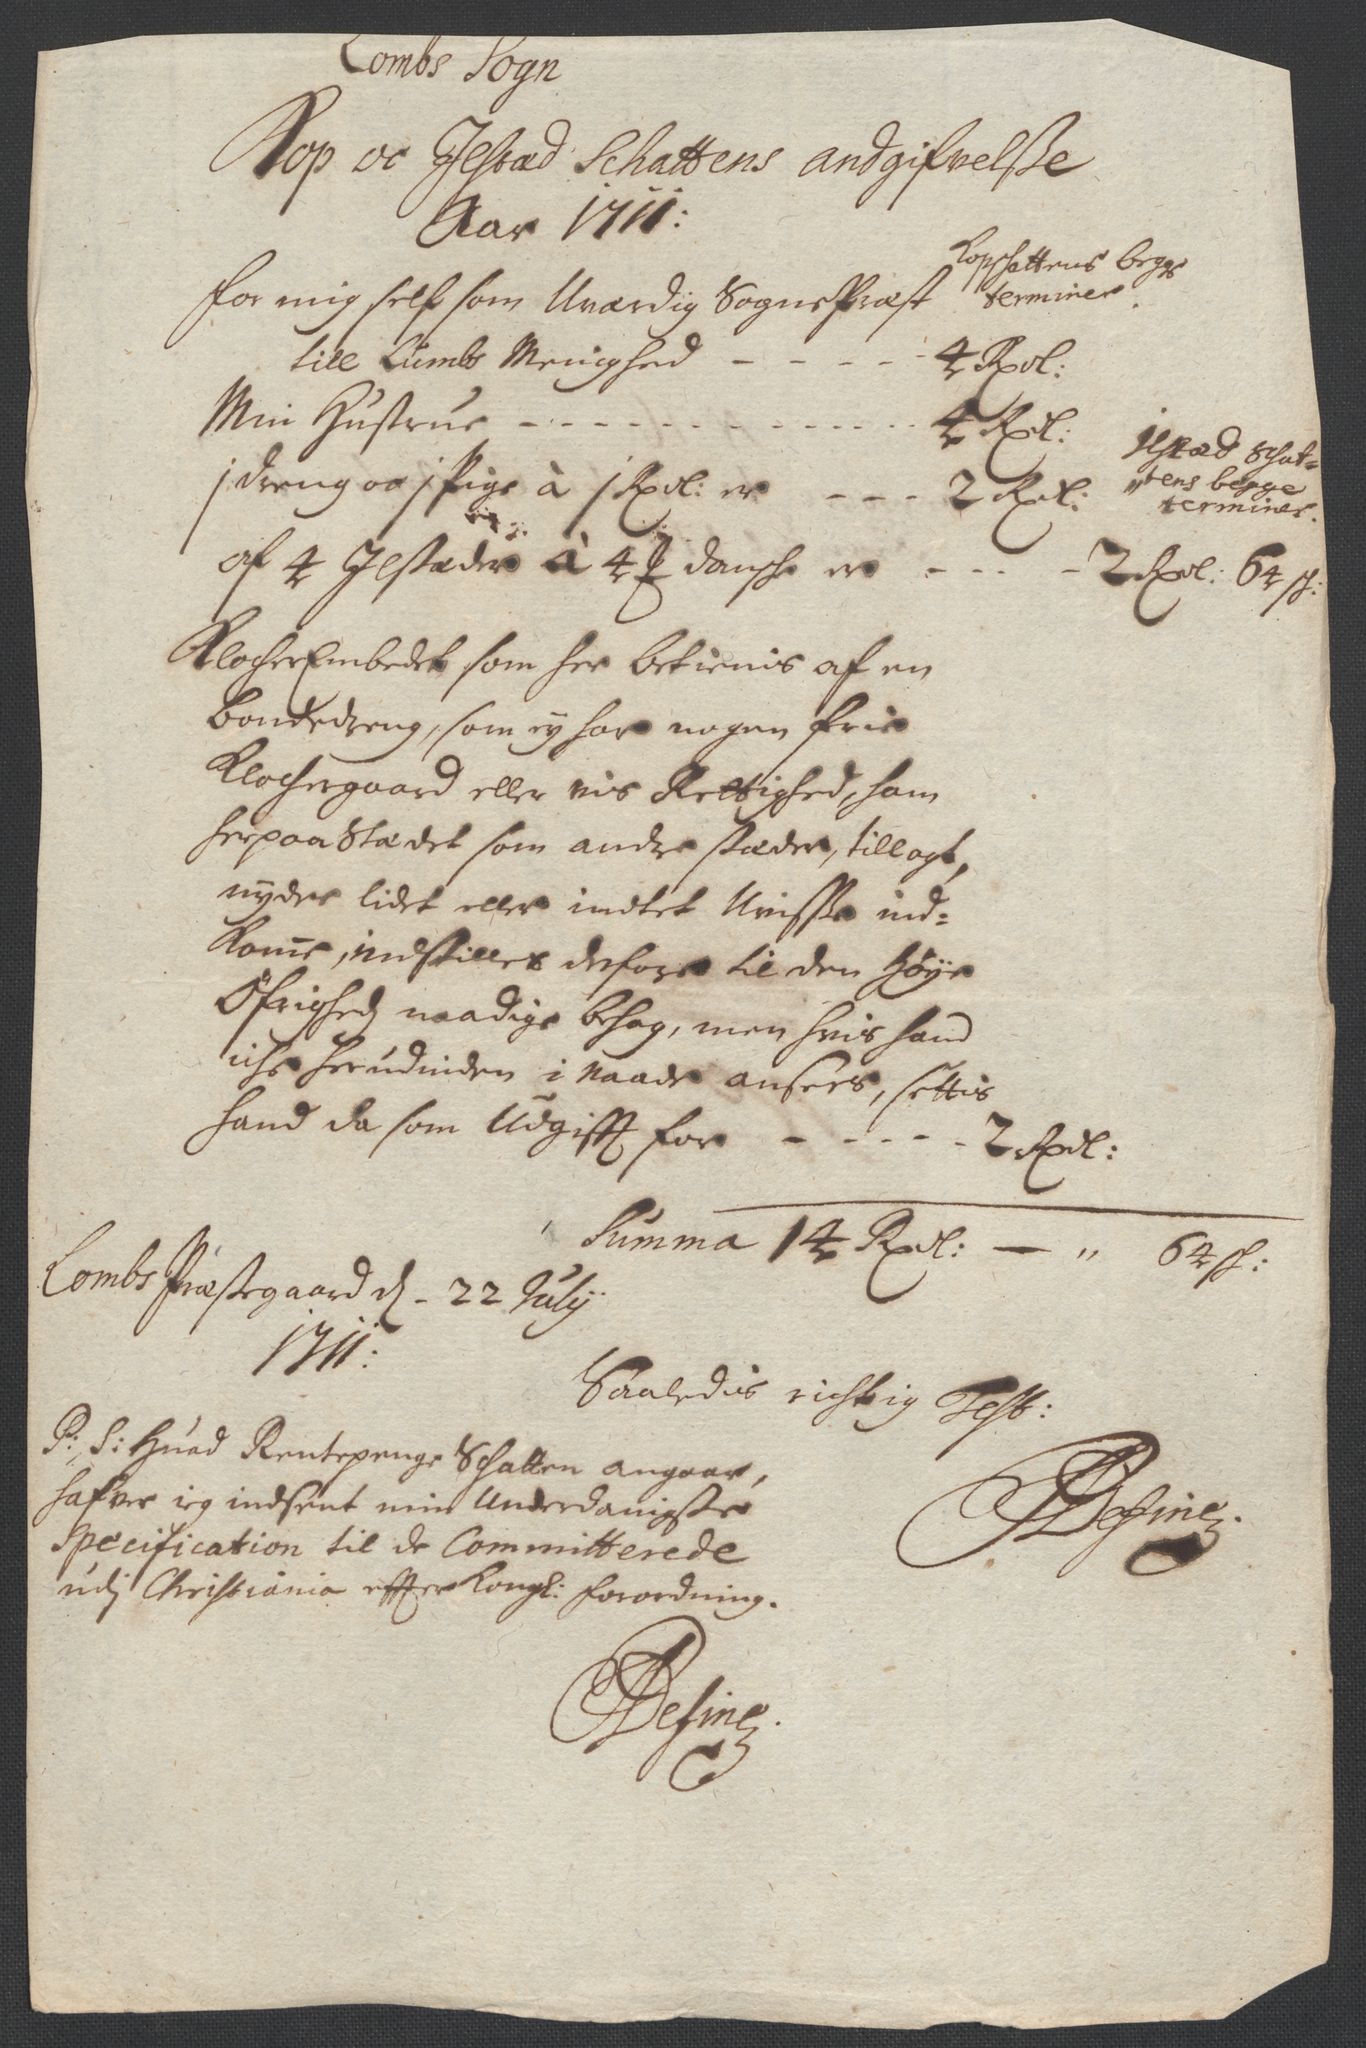 Lombs Sogn
Kop oc Jlstæd Schattens andgifvelsse
Aar 1711:
Kopschattens begge
terminer.
for mig self som Uværdig SognePræst
till Lumbs Menighed - - - - - 4 Rxdl:
Min Hustrue - - - - - - - - - - 4 Rxdl:
Jlstæd Schat=
tens begge
terminer.
j dreng oc j Pige à j Rxdl: er - - - 2 Rxdl:
af 4 Jlstæder à 4 ₰ dansche er - - - - 2 Rxdl: 64 sh:
KlocherEmbedet som her betienis af en
bondedreng, som ey har nogen frie
Klochergaard eller vis Rettighed, ham
herpaa Stædet som andre stæder, tillagt,
nyder lidet eller indtet Uvisse ind=
komme, indstilles derfore til den Høye
Øfrighed naadige behag, men hvis hand
iche herudinden i Naade ansees, settis
hand da som Udgifft for - - - - - 2 Rxdl:
Summa 14 Rxdl: — " 64 sh:
Lombs Præstegaard d. 22 July
1711:
Saaledis richtig Test:
P: S: Huad Rentepenge Schatten angaar,
hafver ieg indsent min Underdanigste
Specification til de Committerede
udj Christiania effter Kongl: forordning.
Desinez.
Desinez.